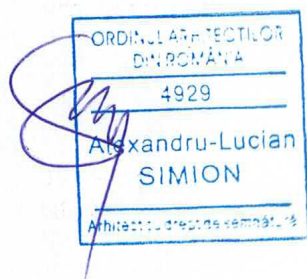 ORDINUL ARHITECTILOR
DIN ROMÂNIA
4929
Alexandru-Lucian
SIMION
Arhitect cu drept de semnătură